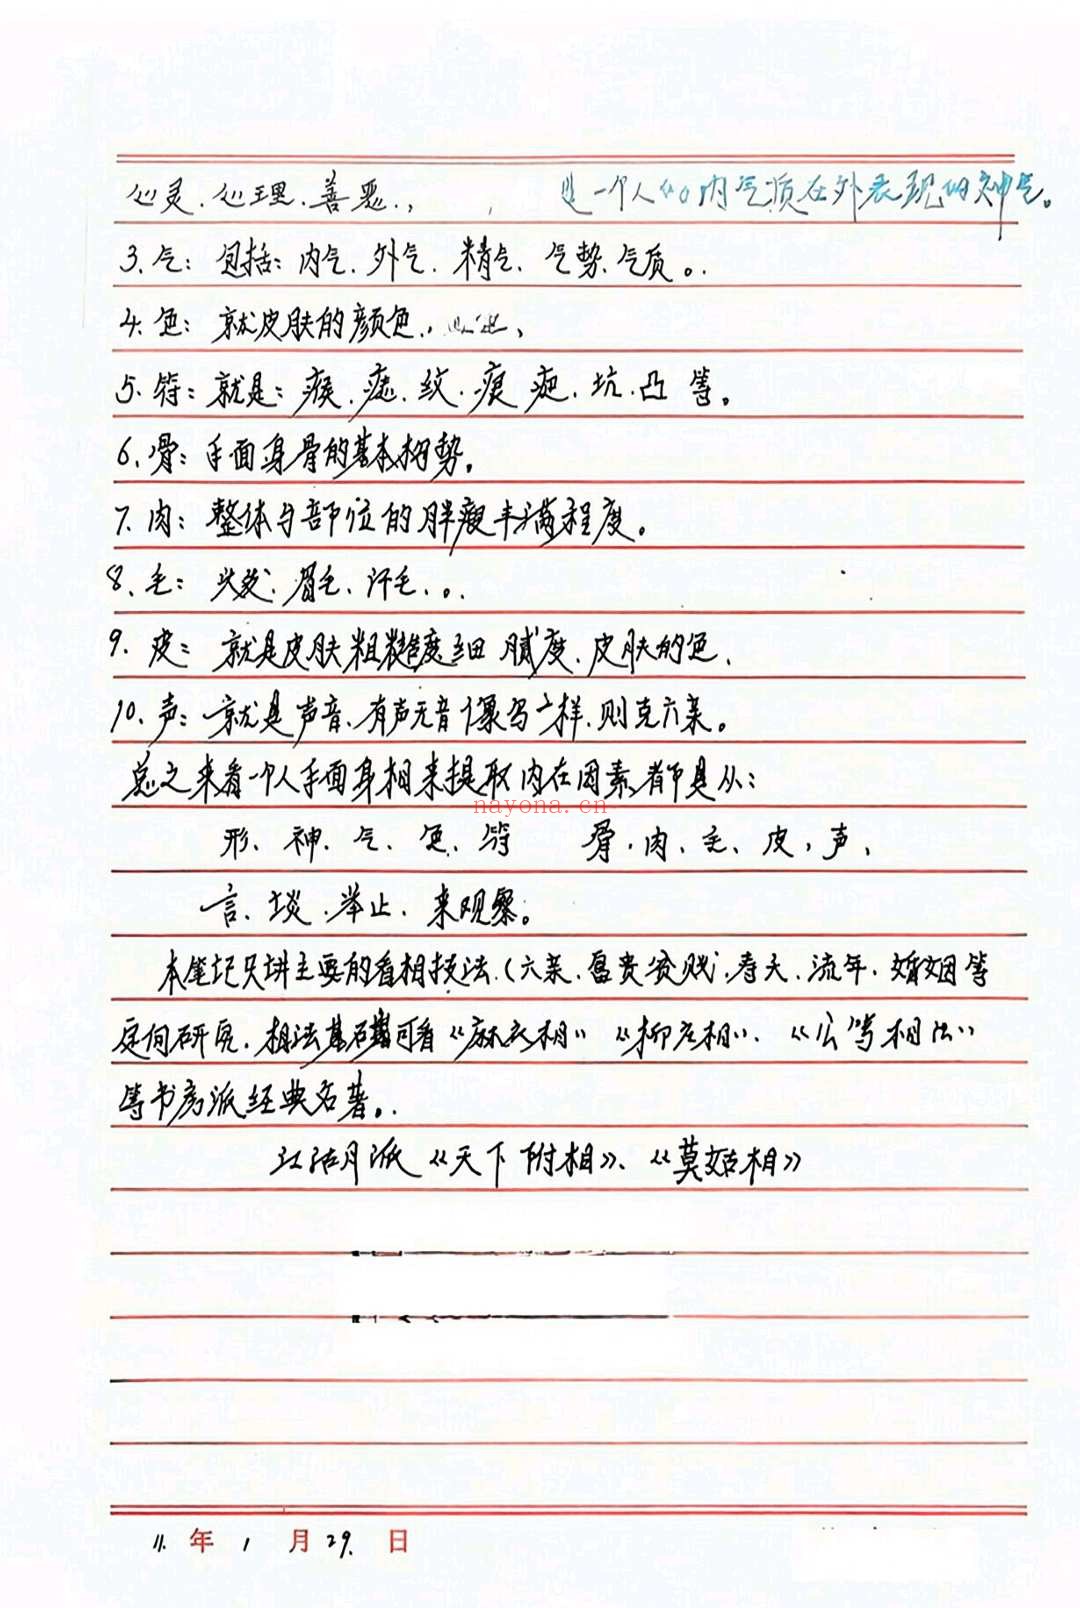 心灵、心理、善恶、, 是一个人的内气质在外表现的神气。
3、气：包括：内气、外气、精气、气势、气质。
4、色：就皮肤的颜色、
5、符：就是：瘊、痣、纹、痕、疤、坑、凸等。
6、骨：手面身骨的基本相势。
7、肉：整体与部位的胖瘦丰满程度。
8、毛：头发、眉毛、汗毛、。
9、皮：就是皮肤粗糙度细腻度、皮肤的色、
10、声：就是声音、有声无音像一样、则克六亲。
总之来看一个人手面身相来提取内在因素都是从：
nayona.cn
形、神、气、色、符 骨、肉、毛、皮、声、
言、谈、举止、来观察。
本笔记只讲主要的看相技法、(六亲、富贵贫贱、寿夭、流年、婚姻等
定向研究、相法基础可看《麻衣相》《柳庄相》、《公笃相法》
等书房派经典名著。
江湖月派《天下附相》、《莫姑相》
11.年1月29.日